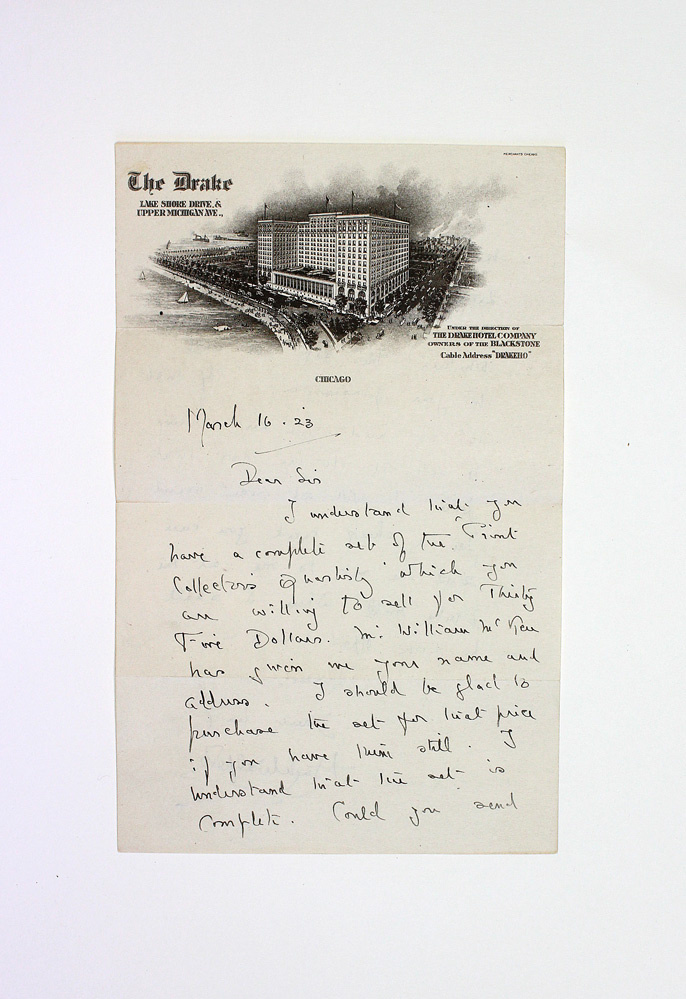 The Drake
LAKE SHORE DRIVE, &
UPPER MICHIGAN AVE.,
UNDER THE DIRECTION OF
THE DRAKE HOTEL COMPANY
OWNERS OF THE BLACKSTONE
Cable Address "DRAKEHO"
CHICAGO
March 16. 23
Dear Sir
I understand that you
have a complete set of the "Print
Collectors Quarterly" which you
are willing to sell for Thirty
Five Dollars. Mr William McKee
has given me your name and
address. I should be glad to
purchase the set for that price
if you have them still. I
understand that the set is
complete. Could you send